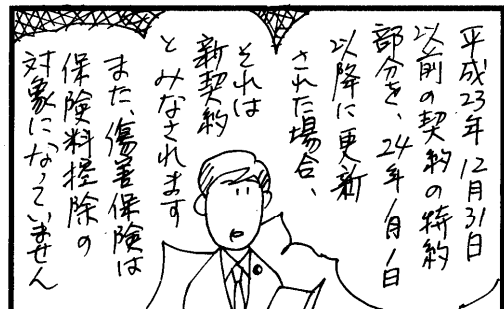 平成23年12月31日
以前の契約の特約
部分を、24年1月1日
以降に更新
された場合、
それは
新契約
とみなされます
また、傷害保険は
保険料控除の
対象になっていません